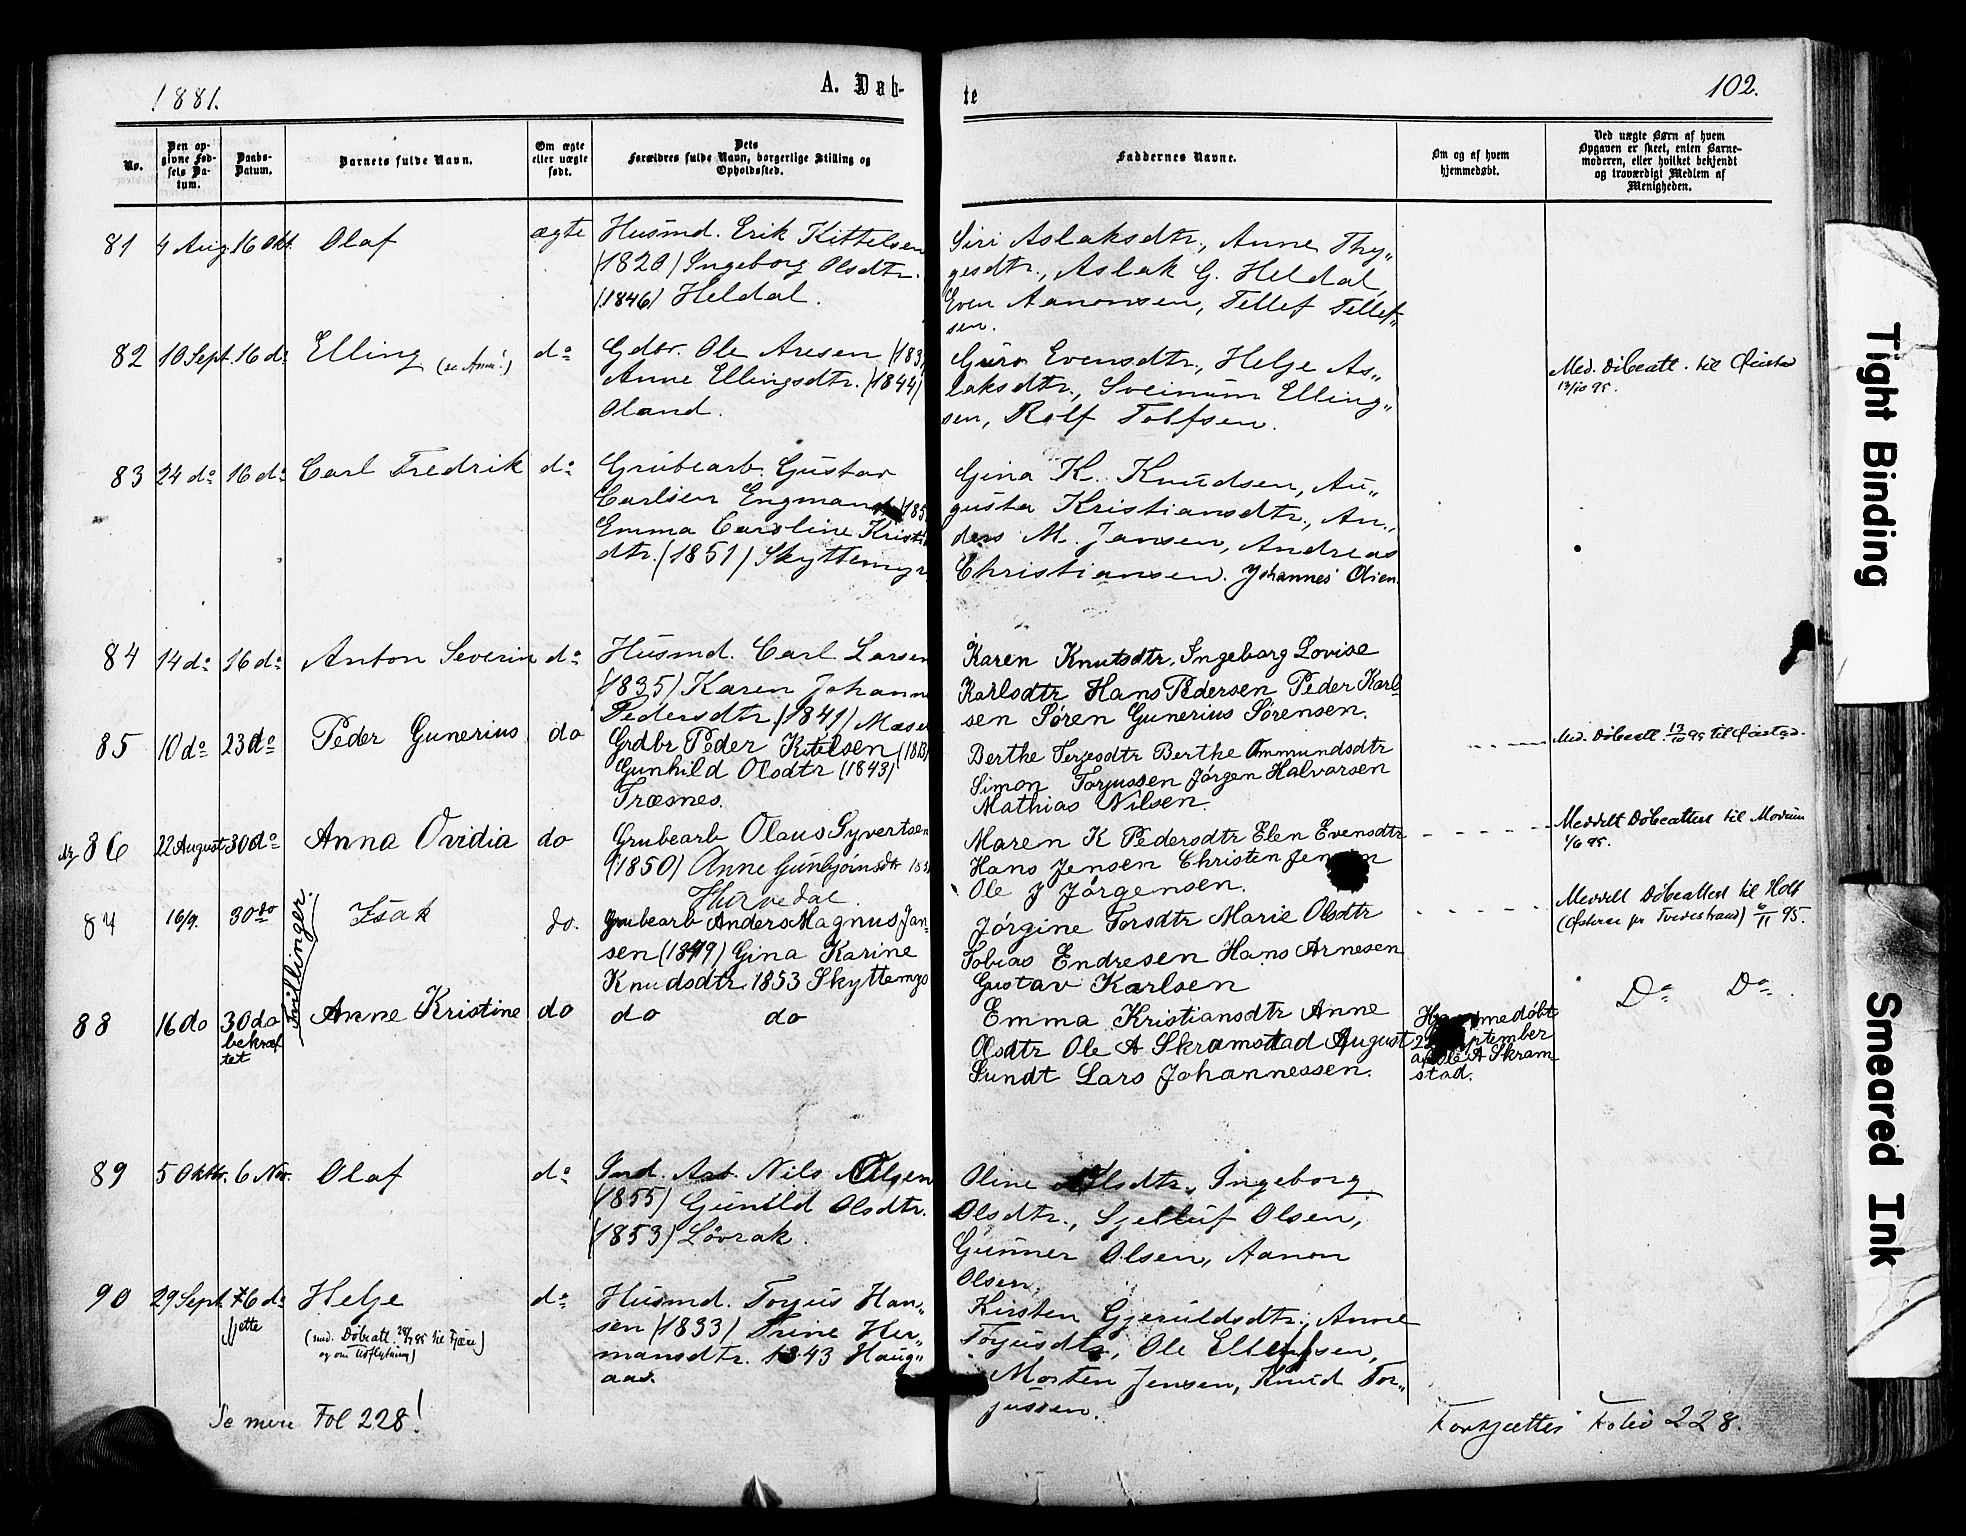 1881.
A. Døb-
te
102.
No.
Den op-
givne Fød-
sels Da-
tum.
Daabs-
Datum.
Barnets fulde Navn.
Om ægte
eller uægte
født.
Dets
Forældres fulde Navn, borgerlige Stilling og
Opholdssted.
Faddernes Navne.
Om og af hvem
hjemmedøbt.
Ved uægte Børn af hvem
Opgaven er skeet, enten Barne-
moderen, eller hvilket bekjendt
og troværdigt Medlem af
Menigheden.
81 4 Aug. 16 Okt. Olaf ægte
Husmd. Erik Kittelsen
(1820) Ingeborg Olsdtr.
(1846) Heldal.
Siri Aslaksdtr., Anne Thy„
gesdtr., Aslak G. Heldal,
Even Aanonsen, Tellef Tellef„
sen.
82 10 Sept. 16 do Elling do
Gdbr. Ole Aresen (183
Anne Ellingsdtr. (1844)
Oland.
Guro Evensdtr., Helje As„
laksdtr., Sveinum Elling„
sen, Rolf Tolfsen.
Med. Døbeatt. til Øiestad
13/10 95.
83 24 do 16 do Carl Fredrik do
Grubearb. Gustav
Carlsen Engmand (185
Emma Caroline Kristi
dtr. (1851) Skyttemyr
Gina K. Knudsen, Au„
gusta Kristiansdtr., An„
ders M. Jansen, Andreas
Christiansen. Johannes Olsen
84 14 do 16 do Anton Severin do
Husmd. Carl Larsen
(1835) Karen Johanne
Pedersdtr. (1841)
Karen Knutsdtr. Ingeborg Lovise
Karlsdtr Hans Pedersen Peder Karl
sen Søren Gunerius Sørensen.
85 10 do 23 do Peder Gunerius do
Grdbr Peder Kitilsen
Gunhild Olsdtr (1843)
Træsnes.
Berthe Terjesdtr Berthe Ommundsdtr
Simon Torjussen Jørgen Halvorsen
Mathias Nilsen.
Med. Døbeatt. 13/10 95 til Øiestad.
86 22 August 30 do Anna Ovidia do
Grubearb Olaus Syvertsen
(1850) Anne Gunbjørnsdtr
Maren K Pedersdtr Elen Evensdtr
Hans Jensen Christen Jensen
Ole J Jørgensen.
Meddelt Døbeattest til Modum
1/6 95.
87 16/9. 30 do Isak do.
Tvillinger.
Grubearb Anders Magnus Jan-
sen (1849) Gina Karine
Knudsdtr. 1853 Skyttemyr
Jørgine Torsdtr Marie Olsdtr
Tobias Endresen Hans Arnesen
Gustav Karlsen
Meddelt Døbeattest til Holt
(Østeraa pr Tvedestrand) 6/11 95.
88 16 do 30 do Anne Kristine do
bekræf
tet
do do
Emma Kristiansdtr Anne
Olsdtr Ole A Skramstad August
Sundt Lars Johannessen.
Hjemmedøbt
September
af Ole A Skram
stad.
Do Do
89 5 Oktbr. 6 Nov. Olaf do
Ind. Arb. Nils Olsen
(1855) Gunild Olsdtr.
(1853) Løvrak.
Oline Olsdtr., Ingeborg
Olsdtr., Sjelluf Olsen,
Gunner Olsen, Aanon
Olsen.
90 29 Sept. 6 do Helje do
Mette
(med. Døbeatt. 28/7 85 til Fjære)
og om Udflytning)
Husmd. Torjus Han„
sen (1833) Trine Her„
mansdtr. 1843 Haug„
aas.
Kirsten Gjeruldsdtr., Anne
Torjusdtr., Ole Ellefsen,
Morten Jensen, Knud Tor„
jussen.
Se mere Fol 228!
Fortsættes Folio 228.
Tight Binding
Smeared Ink